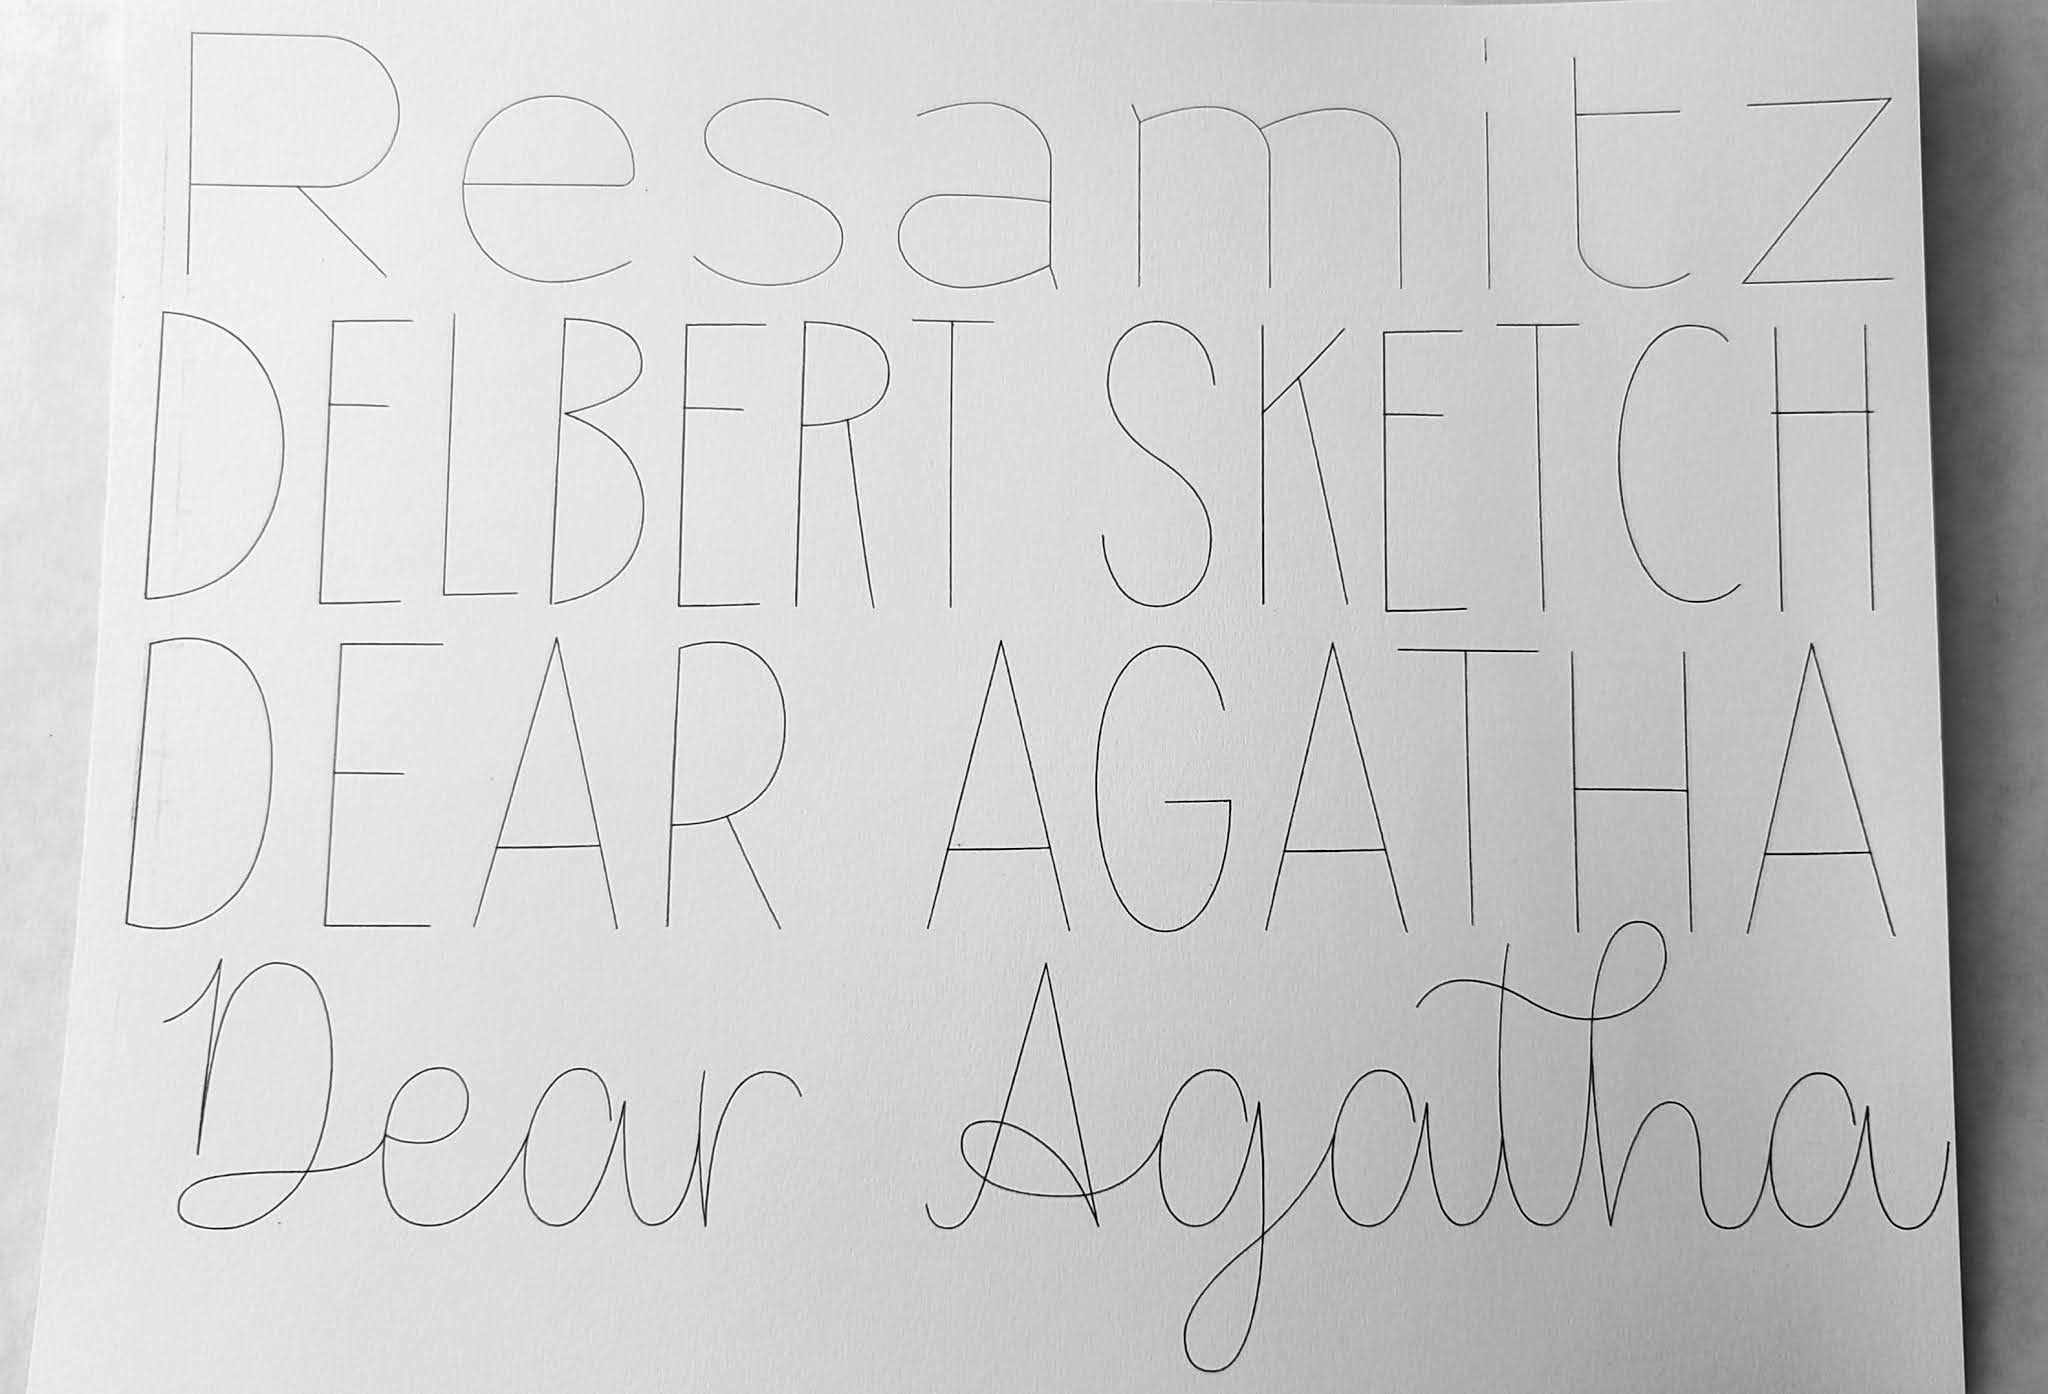 Resamitz
DELBERT SKETCH
DEAR AGATHA
Dear Agatha